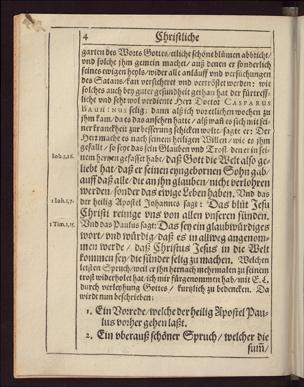 4 Christliche
garten des Worts Gottes/ etliche schöne blümen abbricht/
und solche ihm gemein machet/ auß denen er sonderlich
seines ewigen heyls/ wider alle anläuff und versuchungen
des Satans/ kan versicheret und vertröstet werden: wie
solches auch bey guter gesundheit gethan hat der fürtreff-
liche und sehr wol verdiente Herr Doctor CASPARUS
BAUHINUS selig: dann als ich vor etlichen wochen zu
ihm kam/ da es das ansehen hatte/ als wan es sich mit sei-
ner kranckheit zur besserung schicken wolte/ sagte er: Der
Herr mache es nach seinem heiligen Willen/ wie es ihm
gefalle/ so seye das sein Glauben und Trost/ den er in sei-
Ioh.3,16. nem hertzen gefasset habe/ daß Gott die Welt also ge-
liebt hat/ daß er seinen eyngebornen Sohn gab/
auff daß alle/ die an ihn glauben/ nicht verlohren
werden/ sonder das ewige Leben haben. Und das
1 Ioh.1,7. der heilig Apostel Johannes sagt: Das blut Jesu
Christi reinige uns von allen unseren sünden.
1 Tim.1,15. Und das Paulus sagt: Das sey ein glaubwürdiges
wort/ und würdig/ daß es in allweg angenom-
men werde/ daß Christus Jesus in die Welt
kommen sey/ die sünder selig zu machen. Welchen
letsten Spruch/ weil er ihn hernach mehrmalen zu seinem
trost widerholet hat/ ich mir fürgenommen hab/ mit E. L.
durch verleyhung Gottes/ kurtzlich zu bedencken. Da
wirdt nun beschrieben:
1. Ein Vorrede/ welche der heilig Apostel Pau-
lus vorher gehen laßt.
2. Ein überauß schöner Spruch/ welcher die
sum̃/